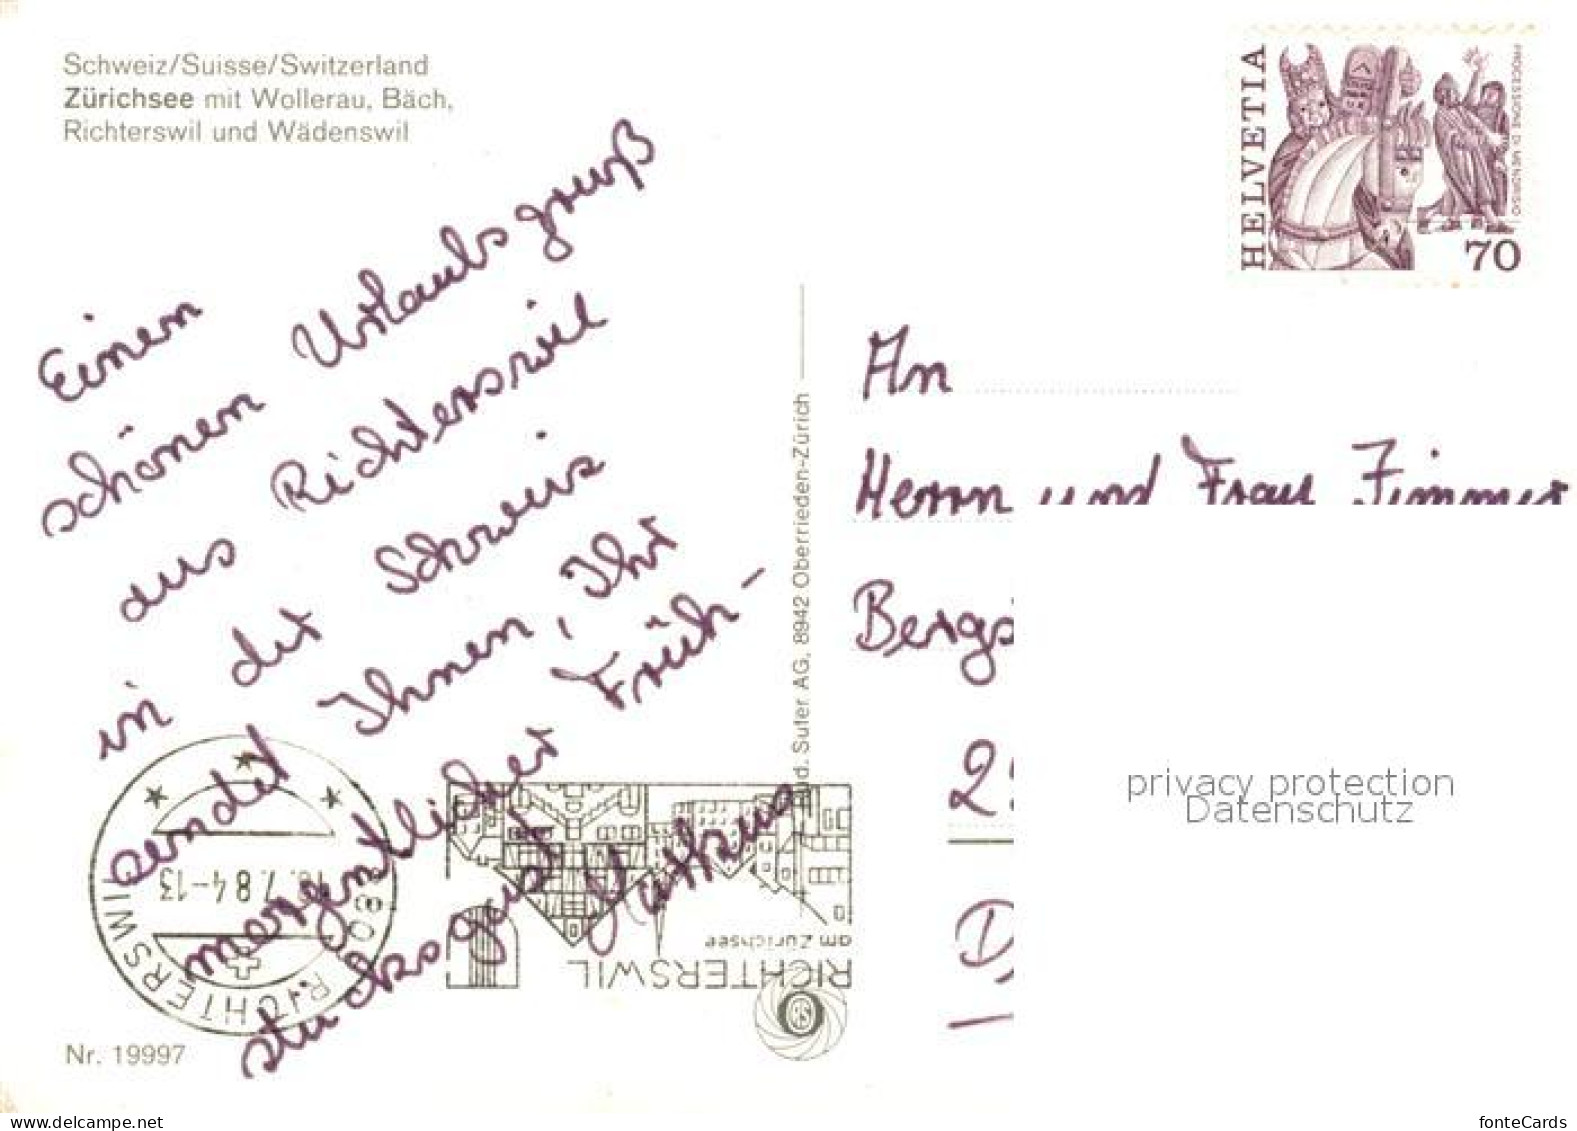 Schweiz/Suisse/Switzerland
Zürichsee mit Wollerau, Bäch,
Richterswil und Wädenswil
HELVETIA
PROCESSIONE DI MENDRISIO
70
Einen
schönen Urlaubsgruß
aus Richterswil
in der Schweiz
sendet Ihnen, Ihr
morgentlicher Früh-
stücksgast
Rud. Suter AG, 8942 Oberrieden-Zürich
An
Herrn und Frau Zimmer
Bergs
2
D
privacy protection
Datenschutz
RICHTERSWIL
7.84-13
RICHTERSWIL
am Zürichsee
Nr. 19997
www.delcampe.net
fonteCards